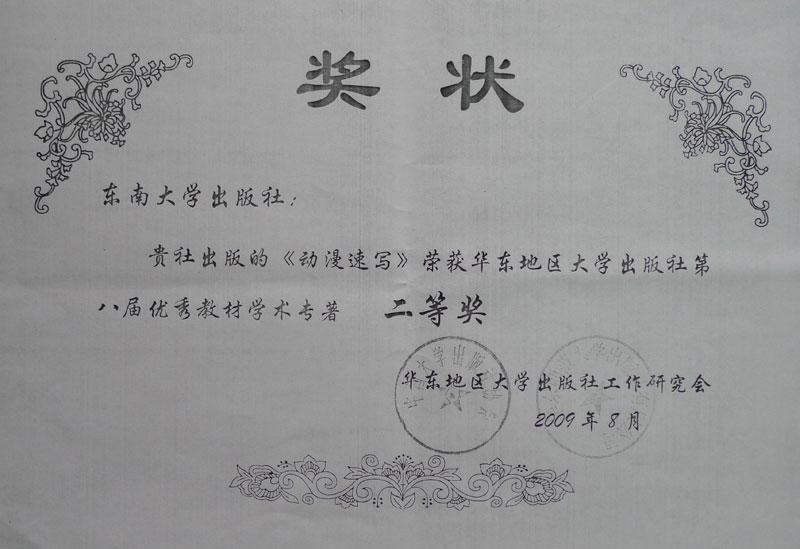 奖状
东南大学出版社：
贵社出版的《动漫速写》荣获华东地区大学出版社第
八届优秀教材学术专著 二等奖
华东地区大学出版社工作研究会
2009年8月